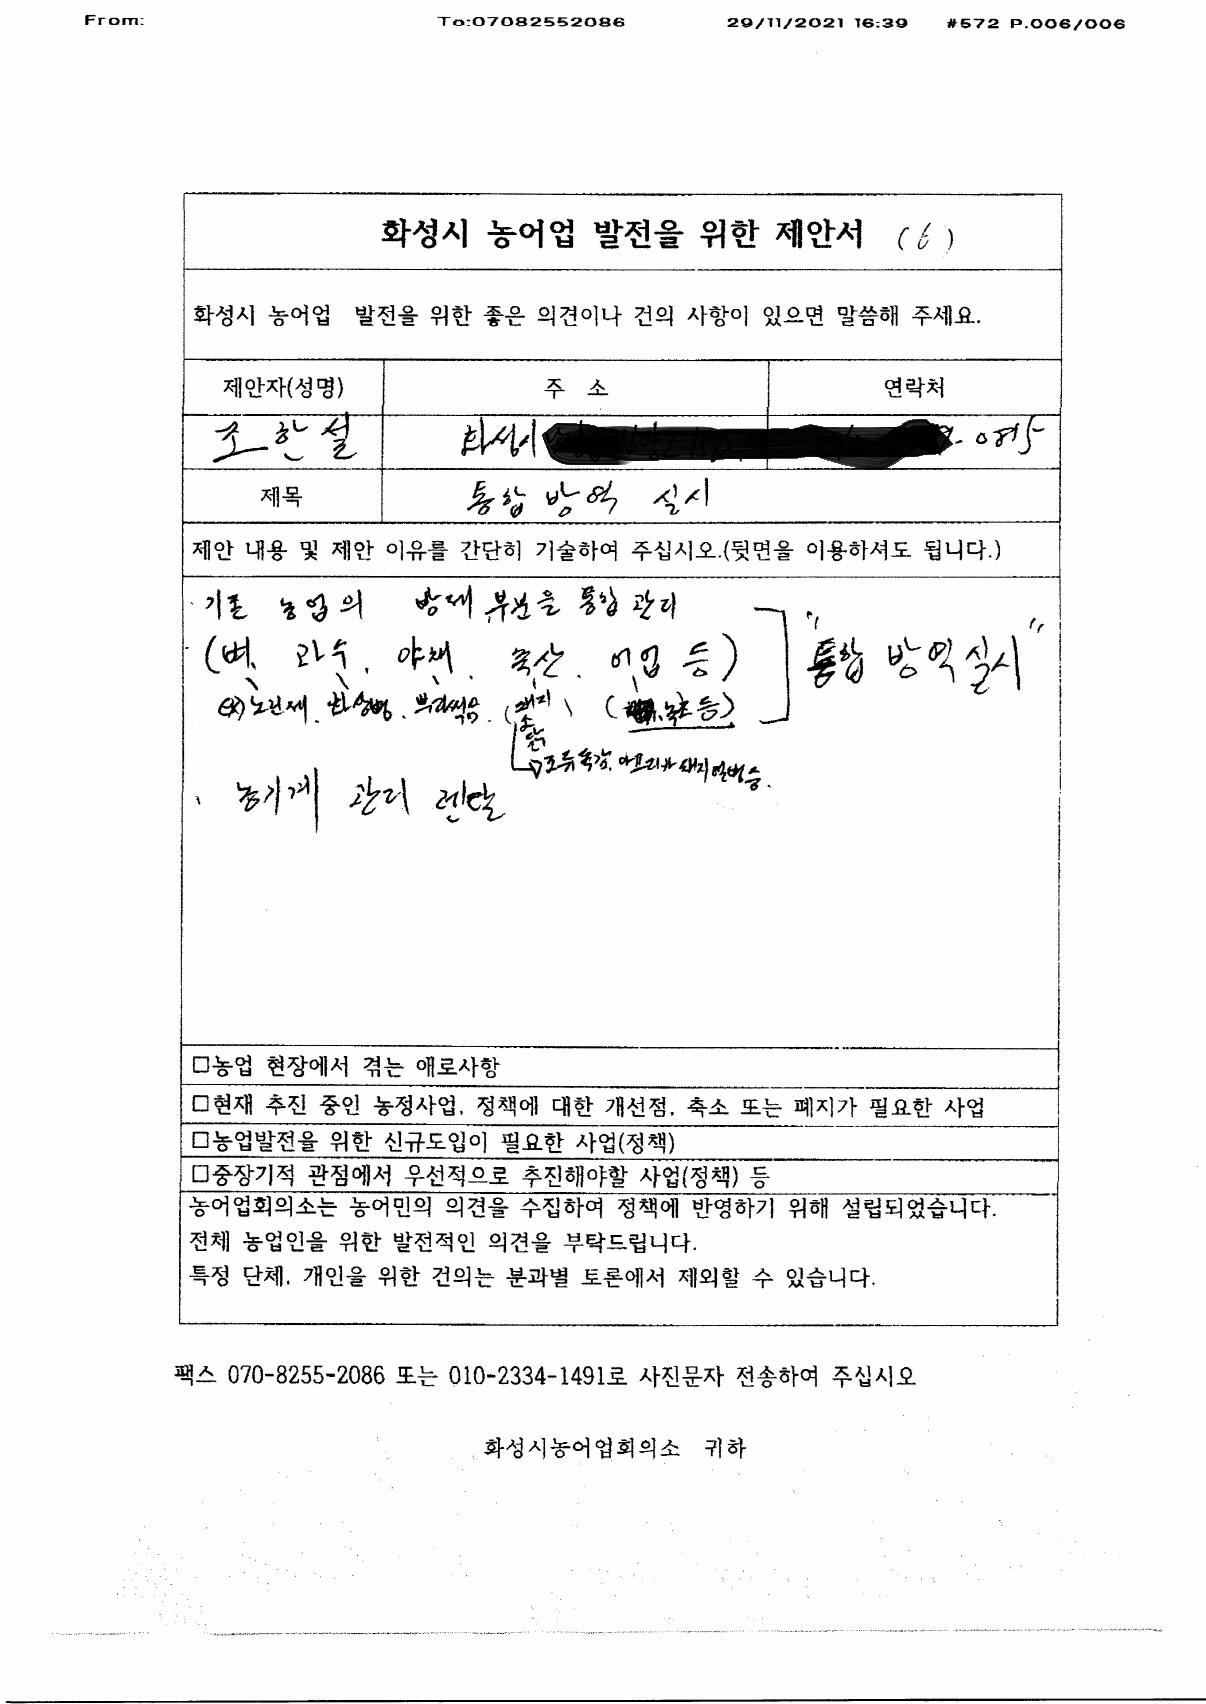 From: To:07082552086 29/11/2021 16:39 #572 P.006/006
화성시 농어업 발전을 위한 제안서 (6)
화성시 농어업 발전을 위한 좋은 의견이나 건의 사항이 있으면 말씀해 주세요.
제안자(성명) 주 소 연락처
조한설 화성시
제목 통합 방역 실시
제안 내용 및 제안 이유를 간단히 기술하여 주십시오.(뒷면을 이용하셔도 됩니다.)
기존 농업의 방제 부분을 통합 관리
(벼, 과수, 야채, 축산, 어업 등) "통합 방역 실시"
화상병. (돼지 등)
소
닭
조류독감, 아프리카 돼지열병 등.
농기계 관리 렌탈
□농업 현장에서 겪는 애로사항
□현재 추진 중인 농정사업, 정책에 대한 개선점, 축소 또는 폐지가 필요한 사업
□농업발전을 위한 신규도입이 필요한 사업(정책)
□중장기적 관점에서 우선적으로 추진해야할 사업(정책) 등
농어업회의소는 농어민의 의견을 수집하여 정책에 반영하기 위해 설립되었습니다.
전체 농업인을 위한 발전적인 의견을 부탁드립니다.
특정 단체, 개인을 위한 건의는 분과별 토론에서 제외할 수 있습니다.
팩스 070-8255-2086 또는 010-2334-1491로 사진문자 전송하여 주십시오
화성시농어업회의소 귀하